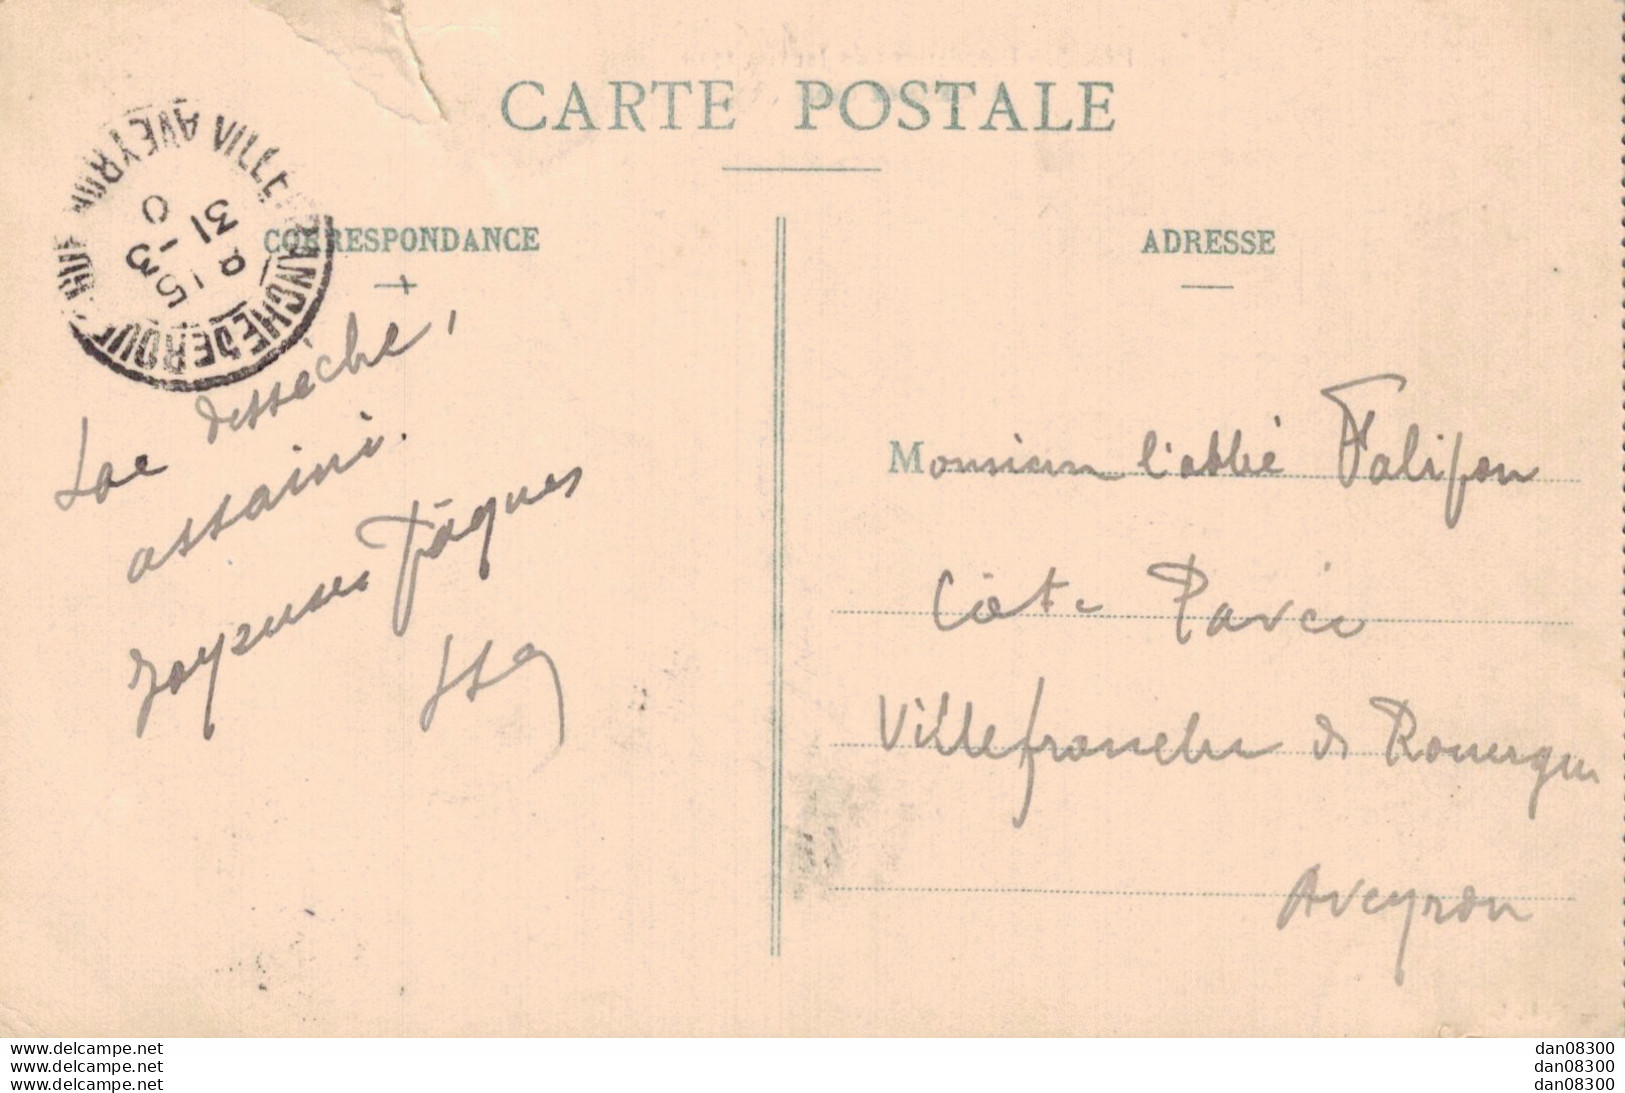 CARTE POSTALE
CORRESPONDANCE
ADRESSE
VILLEFRANCHE DE ROUERGUE AVEYRON
15
31 - 3
Lac desséché,
assaini.
Joyeuses Pâques
Monsieur l'abbé Falipou
Côte Pavée
Villefranche de Rouergue
Aveyron
www.delcampe.net
www.delcampe.net
www.delcampe.net
dan08300
dan08300
dan08300